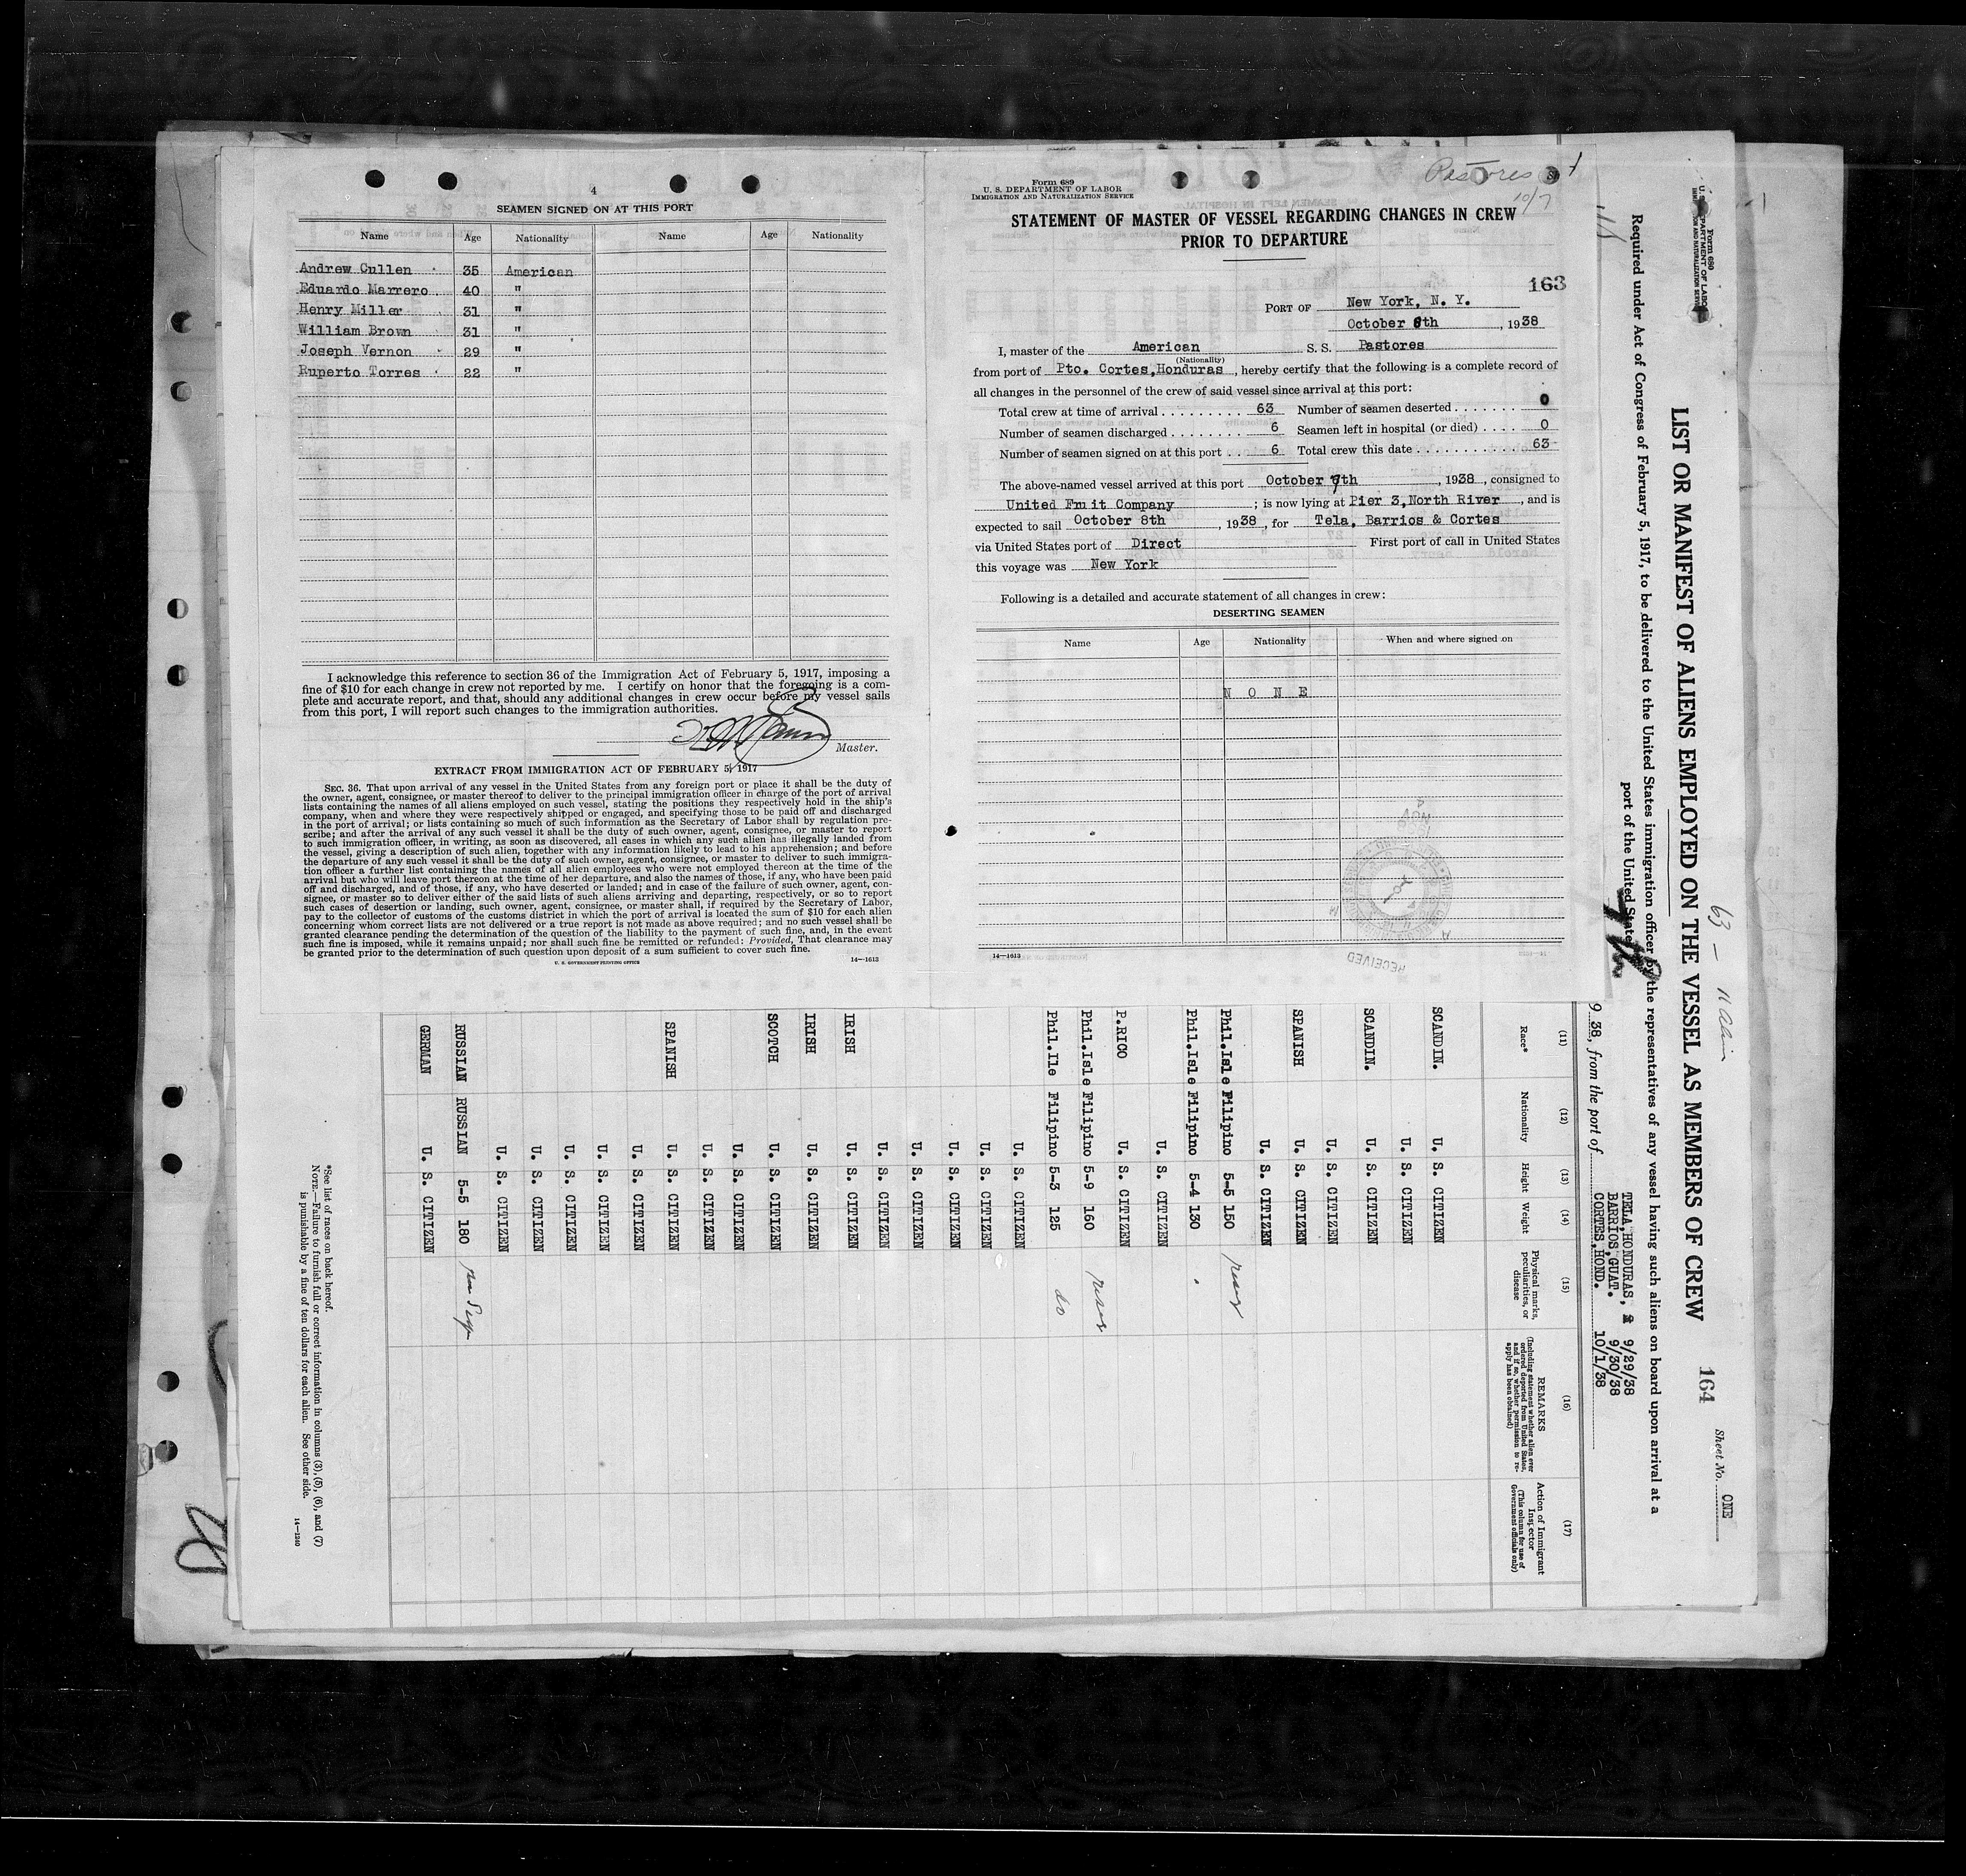 4
SEAMEN SIGNED ON AT THIS PORT
Name Age Nationality Name Age Nationality
Andrew Cullen 35 American
Eduardo Marrero 40 "
Henry Miller 31 "
William Brown 31 "
Joseph Vernon 29 "
Ruperto Torres 22 "
I acknowledge this reference to section 36 of the Immigration Act of February 5, 1917, imposing a
fine of $10 for each change in crew not reported by me. I certify on honor that the foregoing is a com-
plete and accurate report, and that, should any additional changes in crew occur before my vessel sails
from this port, I will report such changes to the immigration authorities.
Master.
EXTRACT FROM IMMIGRATION ACT OF FEBRUARY 5, 1917
SEC. 36. That upon arrival of any vessel in the United States from any foreign port or place it shall be the duty of
the owner, agent, consignee, or master thereof to deliver to the principal immigration officer in charge of the port of arrival
lists containing the names of all aliens employed on such vessel, stating the positions they respectively hold in the ship's
company, when and where they were respectively shipped or engaged, and specifying those to be paid off and discharged
in the port of arrival; or lists containing so much of such information as the Secretary of Labor shall by regulation pre-
scribe; and after the arrival of any such vessel it shall be the duty of such owner, agent, consignee, or master to report
to such immigration officer, in writing, as soon as discovered, all cases in which any such alien has illegally landed from
the vessel, giving a description of such alien, together with any information likely to lead to his apprehension; and before
the departure of any such vessel it shall be the duty of such owner, agent, consignee, or master to deliver to such immigra-
tion officer a further list containing the names of all alien employees who were not employed thereon at the time of the
arrival but who will leave port thereon at the time of her departure, and also the names of those, if any, who have been paid
off and discharged, and of those, if any, who have deserted or landed; and in case of the failure of such owner, agent, con-
signee, or master so to deliver either of the said lists of such aliens arriving and departing, respectively, or so to report
such cases of desertion or landing, such owner, agent, consignee, or master shall, if required by the Secretary of Labor,
pay to the collector of customs of the customs district in which the port of arrival is located the sum of $10 for each alien
concerning whom correct lists are not delivered or a true report is not made as above required; and no such vessel shall be
granted clearance pending the determination of the question of the liability to the payment of such fine, and, in the event
such fine is imposed, while it remains unpaid; nor shall such fine be remitted or refunded: Provided, That clearance may
be granted prior to the determination of such question upon deposit of a sum sufficient to cover such fine.
U. S. GOVERNMENT PRINTING OFFICE 14—1613
Form 689
U. S. DEPARTMENT OF LABOR
IMMIGRATION AND NATURALIZATION SERVICE
Pastores
10/7
STATEMENT OF MASTER OF VESSEL REGARDING CHANGES IN CREW
PRIOR TO DEPARTURE
163
PORT OF New York, N. Y.
October 8th, 1938
I, master of the American S. S. Pastores
(Nationality)
from port of Pto. Cortes, Honduras, hereby certify that the following is a complete record of
all changes in the personnel of the crew of said vessel since arrival at this port:
Total crew at time of arrival 63 Number of seamen deserted 0
Number of seamen discharged 6 Seamen left in hospital (or died) 0
Number of seamen signed on at this port 6 Total crew this date 63
The above-named vessel arrived at this port October 7th, 1938, consigned to
United Fruit Company; is now lying at Pier 3, North River, and is
expected to sail October 8th, 1938, for Tela, Barrios & Cortes
via United States port of Direct First port of call in United States
this voyage was New York
Following is a detailed and accurate statement of all changes in crew:
DESERTING SEAMEN
Name Age Nationality When and where signed on
N O N E
RECEIVED
14—1613
Form 680
U. S. DEPARTMENT OF LABOR
IMMIGRATION AND NATURALIZATION SERVICE
63 — 11
164
Sheet No. ONE
LIST OR MANIFEST OF ALIENS EMPLOYED ON THE VESSEL AS MEMBERS OF CREW
Required under Act of Congress of February 5, 1917, to be delivered to the United States immigration officer by the representatives of any vessel having such aliens on board upon arrival at a
port of the United States
TELA, HONDURAS, 9/29/38
BARRIOS, GUAT. 9/30/38
9 38, from the port of CORTES, HOND. 10/1/38
(11) (12) (13) (14) (15) (16) (17)
Race* Nationality Height Weight Physical marks, peculiarities, or disease REMARKS (Including statement whether alien ever ordered deported from United States, and if so, whether permission to re-apply has been obtained) Action of Immigrant Inspector (This column for use of Government officials only)
SCANDIN. U. S. CITIZEN
U. S. CITIZEN
SCANDIN. U. S. CITIZEN
U. S. CITIZEN
SPANISH U. S. CITIZEN
U. S. CITIZEN
Phil.Isle Filipino 5-5 150
Phil.Isle Filipino 5-4 130
U. S. CITIZEN
P.RICO U. S. CITIZEN
Phil.Isle Filipino 5-9 160
Phil.Ile Filipino 5-3 125 do
U. S. CITIZEN
U. S. CITIZEN
U. S. CITIZEN
U. S. CITIZEN
U. S. CITIZEN
IRISH U. S. CITIZEN
IRISH U. S. CITIZEN
SCOTCH U. S. CITIZEN
U. S. CITIZEN
U. S. CITIZEN
SPANISH U. S. CITIZEN
U. S. CITIZEN
U. S. CITIZEN
U. S. CITIZEN
U. S. CITIZEN
U. S. CITIZEN
RUSSIAN RUSSIAN 5-5 180
GERMAN U. S. CITIZEN
*See list of races on back hereof.
NOTE.—Failure to furnish full or correct information in columns (3), (5), (6), and (7)
is punishable by a fine of ten dollars for each alien. See other side.
14—1240